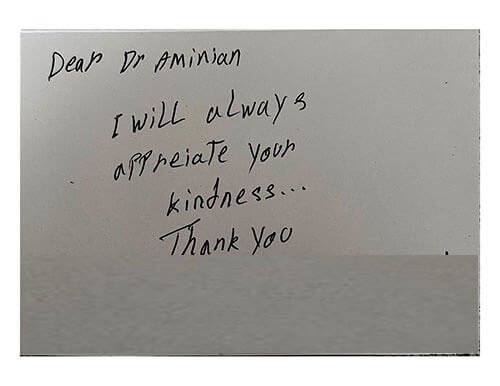 Dear Dr Aminian
I will always
appreiate your
kindness...
Thank you